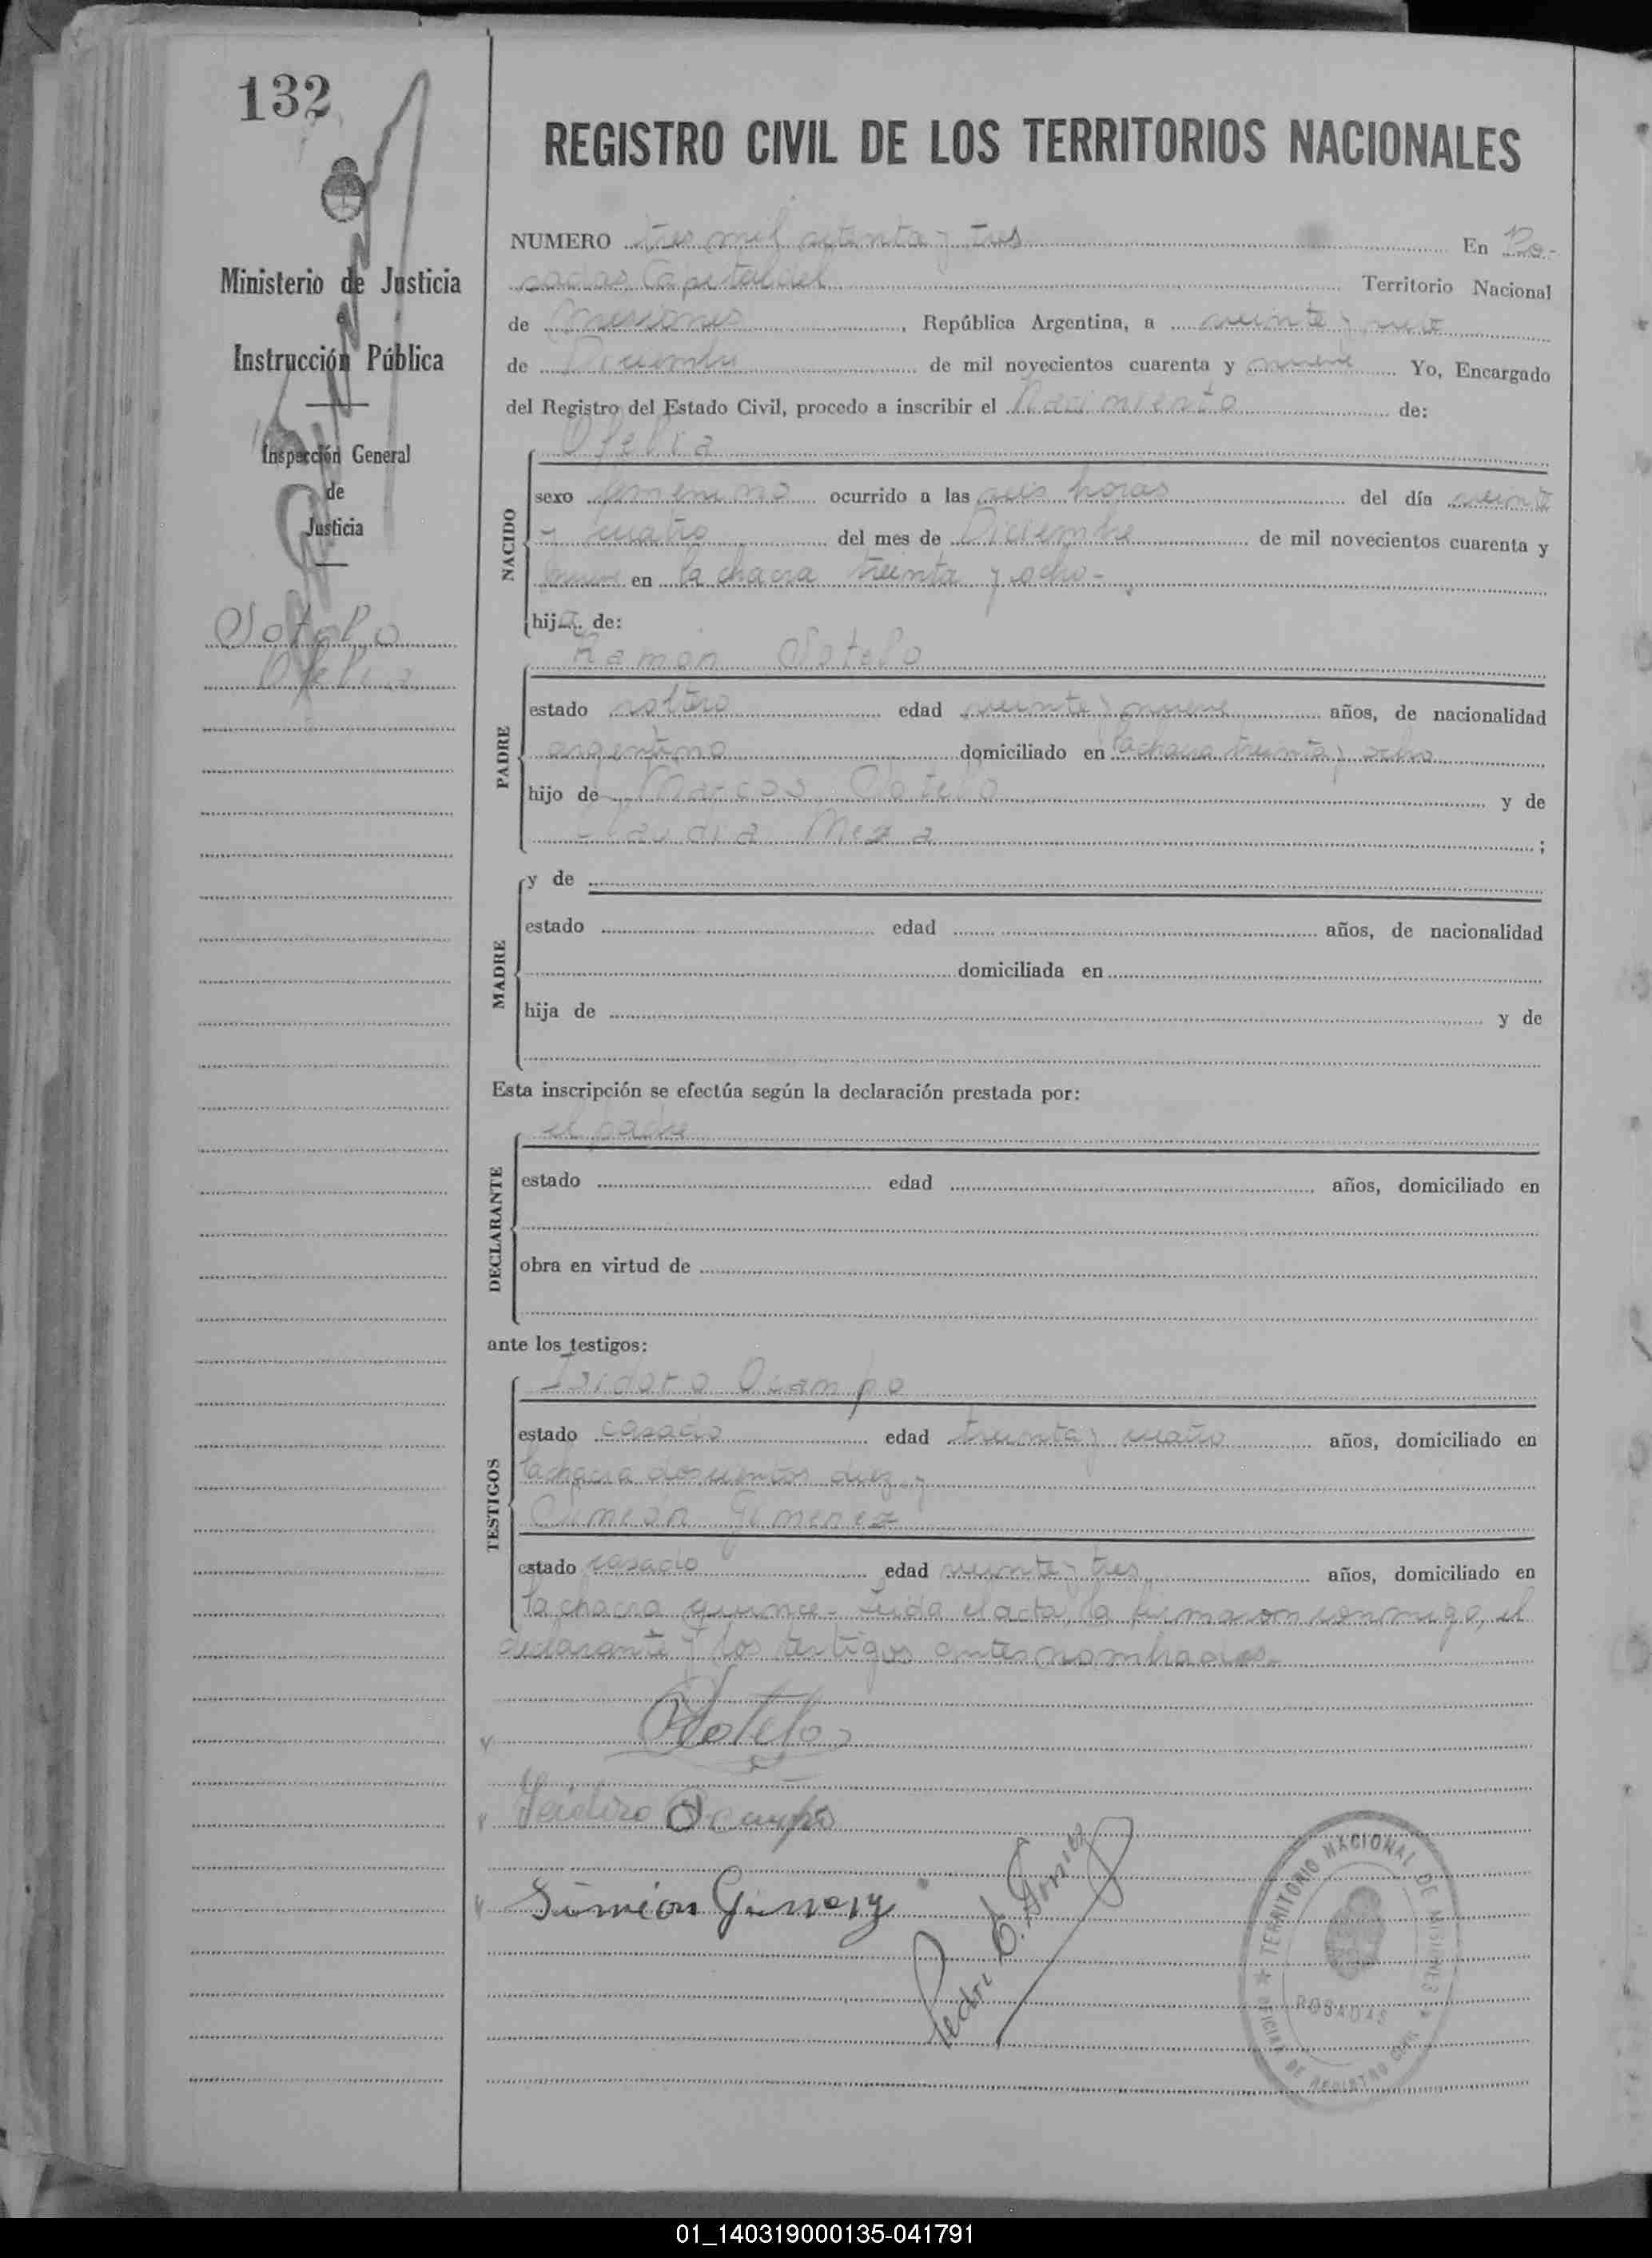 132
REGISTRO CIVIL DE LOS TERRITORIOS NACIONALES
Ministerio de Justicia
Instrucción Pública
Inspección General
de
Justicia
Sotelo
Ofelia
NUMERO tres mil setenta y tres En Po-
sadas Capital del Territorio Nacional
de Misiones, República Argentina, a veinte y siete
de Diciembre de mil novecientos cuarenta y nueve Yo, Encargado
del Registro del Estado Civil, procedo a inscribir el Nacimiento de:
NACIDO
Ofelia
sexo femenino ocurrido a las seis horas del día veinte
y cuatro del mes de Diciembre de mil novecientos cuarenta y
nueve en la chacra treinta y ocho-
hija de:
PADRE
Ramón Sotelo
estado soltero edad veinte y nueve años, de nacionalidad
argentino domiciliado en la chacra treinta y ocho
hijo de Marcos Sotelo y de
Meza ;
MADRE
y de
estado edad años, de nacionalidad
domiciliada en
hija de y de
Esta inscripción se efectúa según la declaración prestada por:
DECLARANTE
el padre
estado edad años, domiciliado en
obra en virtud de
ante los testigos:
TESTIGOS
Isidoro Ocampo
estado casado edad treinta y cuatro años, domiciliado en
la chacra doscientos diez y
Simeón Gimenez
estado casado edad veinte y tres años, domiciliado en
la chacra quince- Leida el acta, la firmaron conmigo, el
declarante y los testigos antes nombrados-
Sotelo
Isidoro Ocampo
Simeón Gimenez
Pedro E. Gomez
TERRITORIO NACIONAL DE MISIONES
POSADAS
OFICINA DE REGISTRO CIVIL
01_140319000135-041791